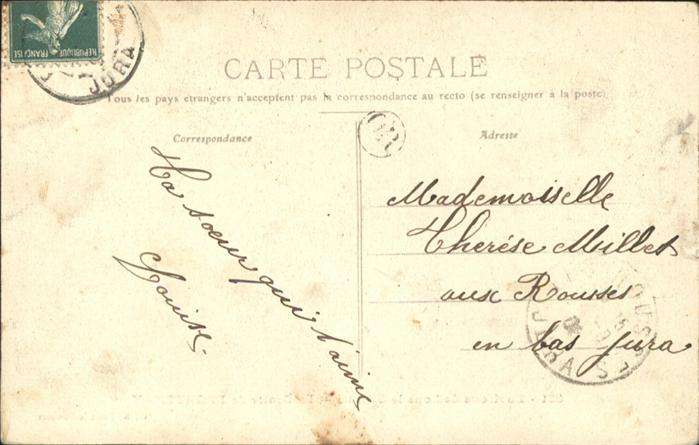 REPUBLIQUE FRANÇAISE
JURA
CARTE POSTALE
Tous les pays étrangers n'acceptent pas la correspondance au recto (se renseigner à la poste)
Correspondance
Adresse
Ta soeur qui t'aime
Louise
Mademoiselle
Therése Millet
aux Rousses
en bas Jura
JURA